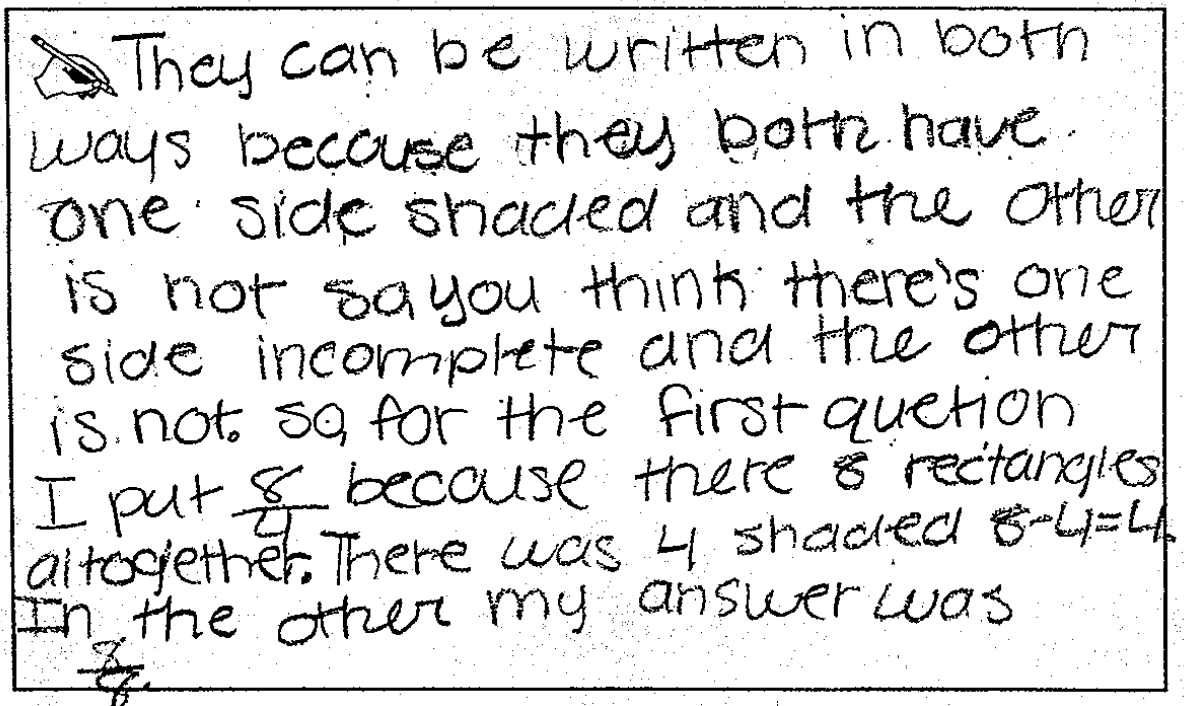 They can be written in both
ways because they both have
one side shaded and the other
is not so you think there's one
side incomplete and the other
is not. so, for the first quetion
I put 8/4 because there 8 rectangles
altogether. There was 4 shaded 8-4=4.
In the other my answer was